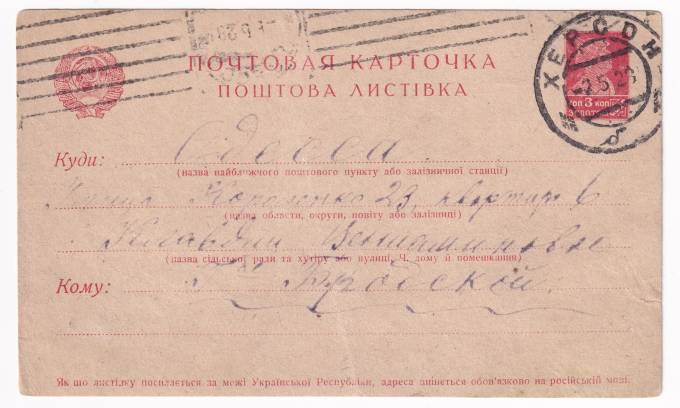 ПОЧТОВАЯ КАРТОЧКА
ПОШТОВА ЛИСТІВКА
ХЕРСОН
КОП 3 КОП
б
Куди: Одесса.
(назва найближчого поштового пункту або залізничної станції)
Улица Короленко 23, квартира 6
(назва области, округи, повіту або залізниці)
Клавдии Вениаминовне
(назва сільської ради та хутіру або вулиці, Ч. дому й помешкання)
Кому: Бродской.
Як що листівку посилається за межі Української Республіки, адреса пишеться обов'язково на російській мові.